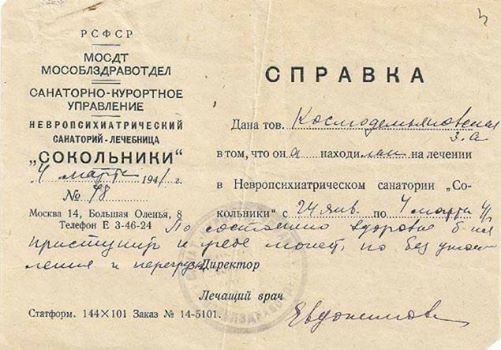 РСФСР
МОСДТ
МОСОБЛЗДРАВОТДЕЛ
САНАТОРНО-КУРОРТНОЕ
УПРАВЛЕНИЕ
НЕВРОПСИХИАТРИЧЕСКИЙ
САНАТОРИЙ-ЛЕЧЕБНИЦА
„СОКОЛЬНИКИ"
4 марта 1941 г.
№ 98
Москва 14, Большая Оленья, 8
Телефон Е 3-46-24
СПРАВКА
Дана тов. Космодемьяновская
З.А
в том, что он а находилась на лечении
в Невропсихиатрическом санатории „Со-
кольники" с 24 янв. по 4 марта 41
По состоянию здоровья б-ная
приступить к учебе может, но без утом
ления и перегрузки
Директор
Лечащий врач
Евдокимова
Статформ. 144×101 Заказ № 14-5101.